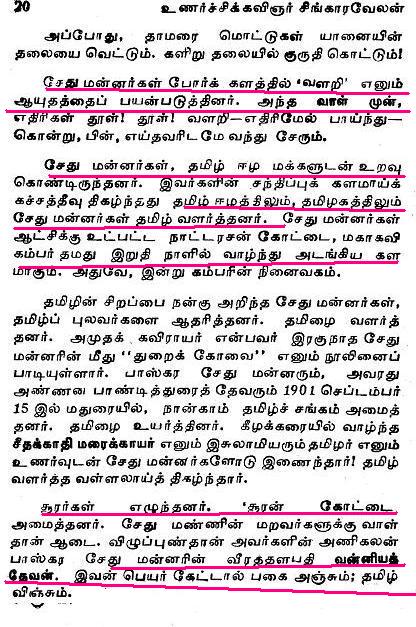 20 உணர்ச்சிக்கவிஞர் சிங்காரவேலன்
அப்போது, தாமரை மொட்டுகள் யானையின்
தலையை வெட்டும். களிறு தலையில் குருதி கொட்டும்!
சேது மன்னர்கள் போர்க் களத்தில் 'வளறி' எனும்
ஆயுதத்தைப் பயன்படுத்தினர். அந்த வாள் முன்,
எதிரிகள் தூள்! தூள்! வளறி—எதிரிமேல் பாய்ந்து—
கொன்று, பின், எய்தவரிடமே வந்து சேரும்.
சேது மன்னர்கள், தமிழ் ஈழ மக்களுடன் உறவு
கொண்டிருந்தனர். இவர்களின் சந்திப்புக் களமாய்க்
கச்சத்தீவு திகழ்ந்தது தமிழ் ஈழத்திலும், தமிழகத்திலும்
சேது மன்னர்கள் தமிழ் வளர்த்தனர். சேது மன்னர்கள்
ஆட்சிக்கு உட்பட்ட நாட்டரசன் கோட்டை, மகாகவி
கம்பர் தமது இறுதி நாளில் வாழ்ந்து அடங்கிய கள
மாகும். அதுவே, இன்று கம்பரின் நினைவகம்.
தமிழின் சிறப்பை நன்கு அறிந்த சேது மன்னர்கள்,
தமிழ்ப் புலவர்களை ஆதரித்தனர். தமிழை வளர்த்
தனர். அமுதக் கவிராயர் என்பவர் இரகுநாத சேது
மன்னரின் மீது "துறைக் கோவை" எனும் நூலினைப்
பாடியுள்ளார். பாஸ்கர சேது மன்னரும், அவரது
அண்ணன் பாண்டித்துரைத் தேவரும் 1901 செப்டம்பர்
15 இல் மதுரையில், நான்காம் தமிழ்ச் சங்கம் அமைத்
தனர். தமிழை உயர்த்தினர். கீழக்கரையில் வாழ்ந்த
சீதக்காதி மரைக்காயர் எனும் இசுலாமியரும் தமிழர் எனும்
உணர்வுடன் சேது மன்னர்களோடு இணைந்தார்! தமிழ்
வளர்த்த வள்ளலாய்த் திகழ்ந்தார்.
சூரர்கள் எழுந்தனர். 'சூரன் கோட்டை
அமைத்தனர். சேது மண்ணின் மறவர்களுக்கு வாள்
தான் ஆடை. விழுப்புண்தான் அவர்களின் அணிகலன்
பாஸ்கர சேது மன்னரின் வீரத்தளபதி வன்னியத்
தேவன். இவன் பெயர் கேட்டால் பகை அஞ்சும்; தமிழ்
விஞ்சும்.